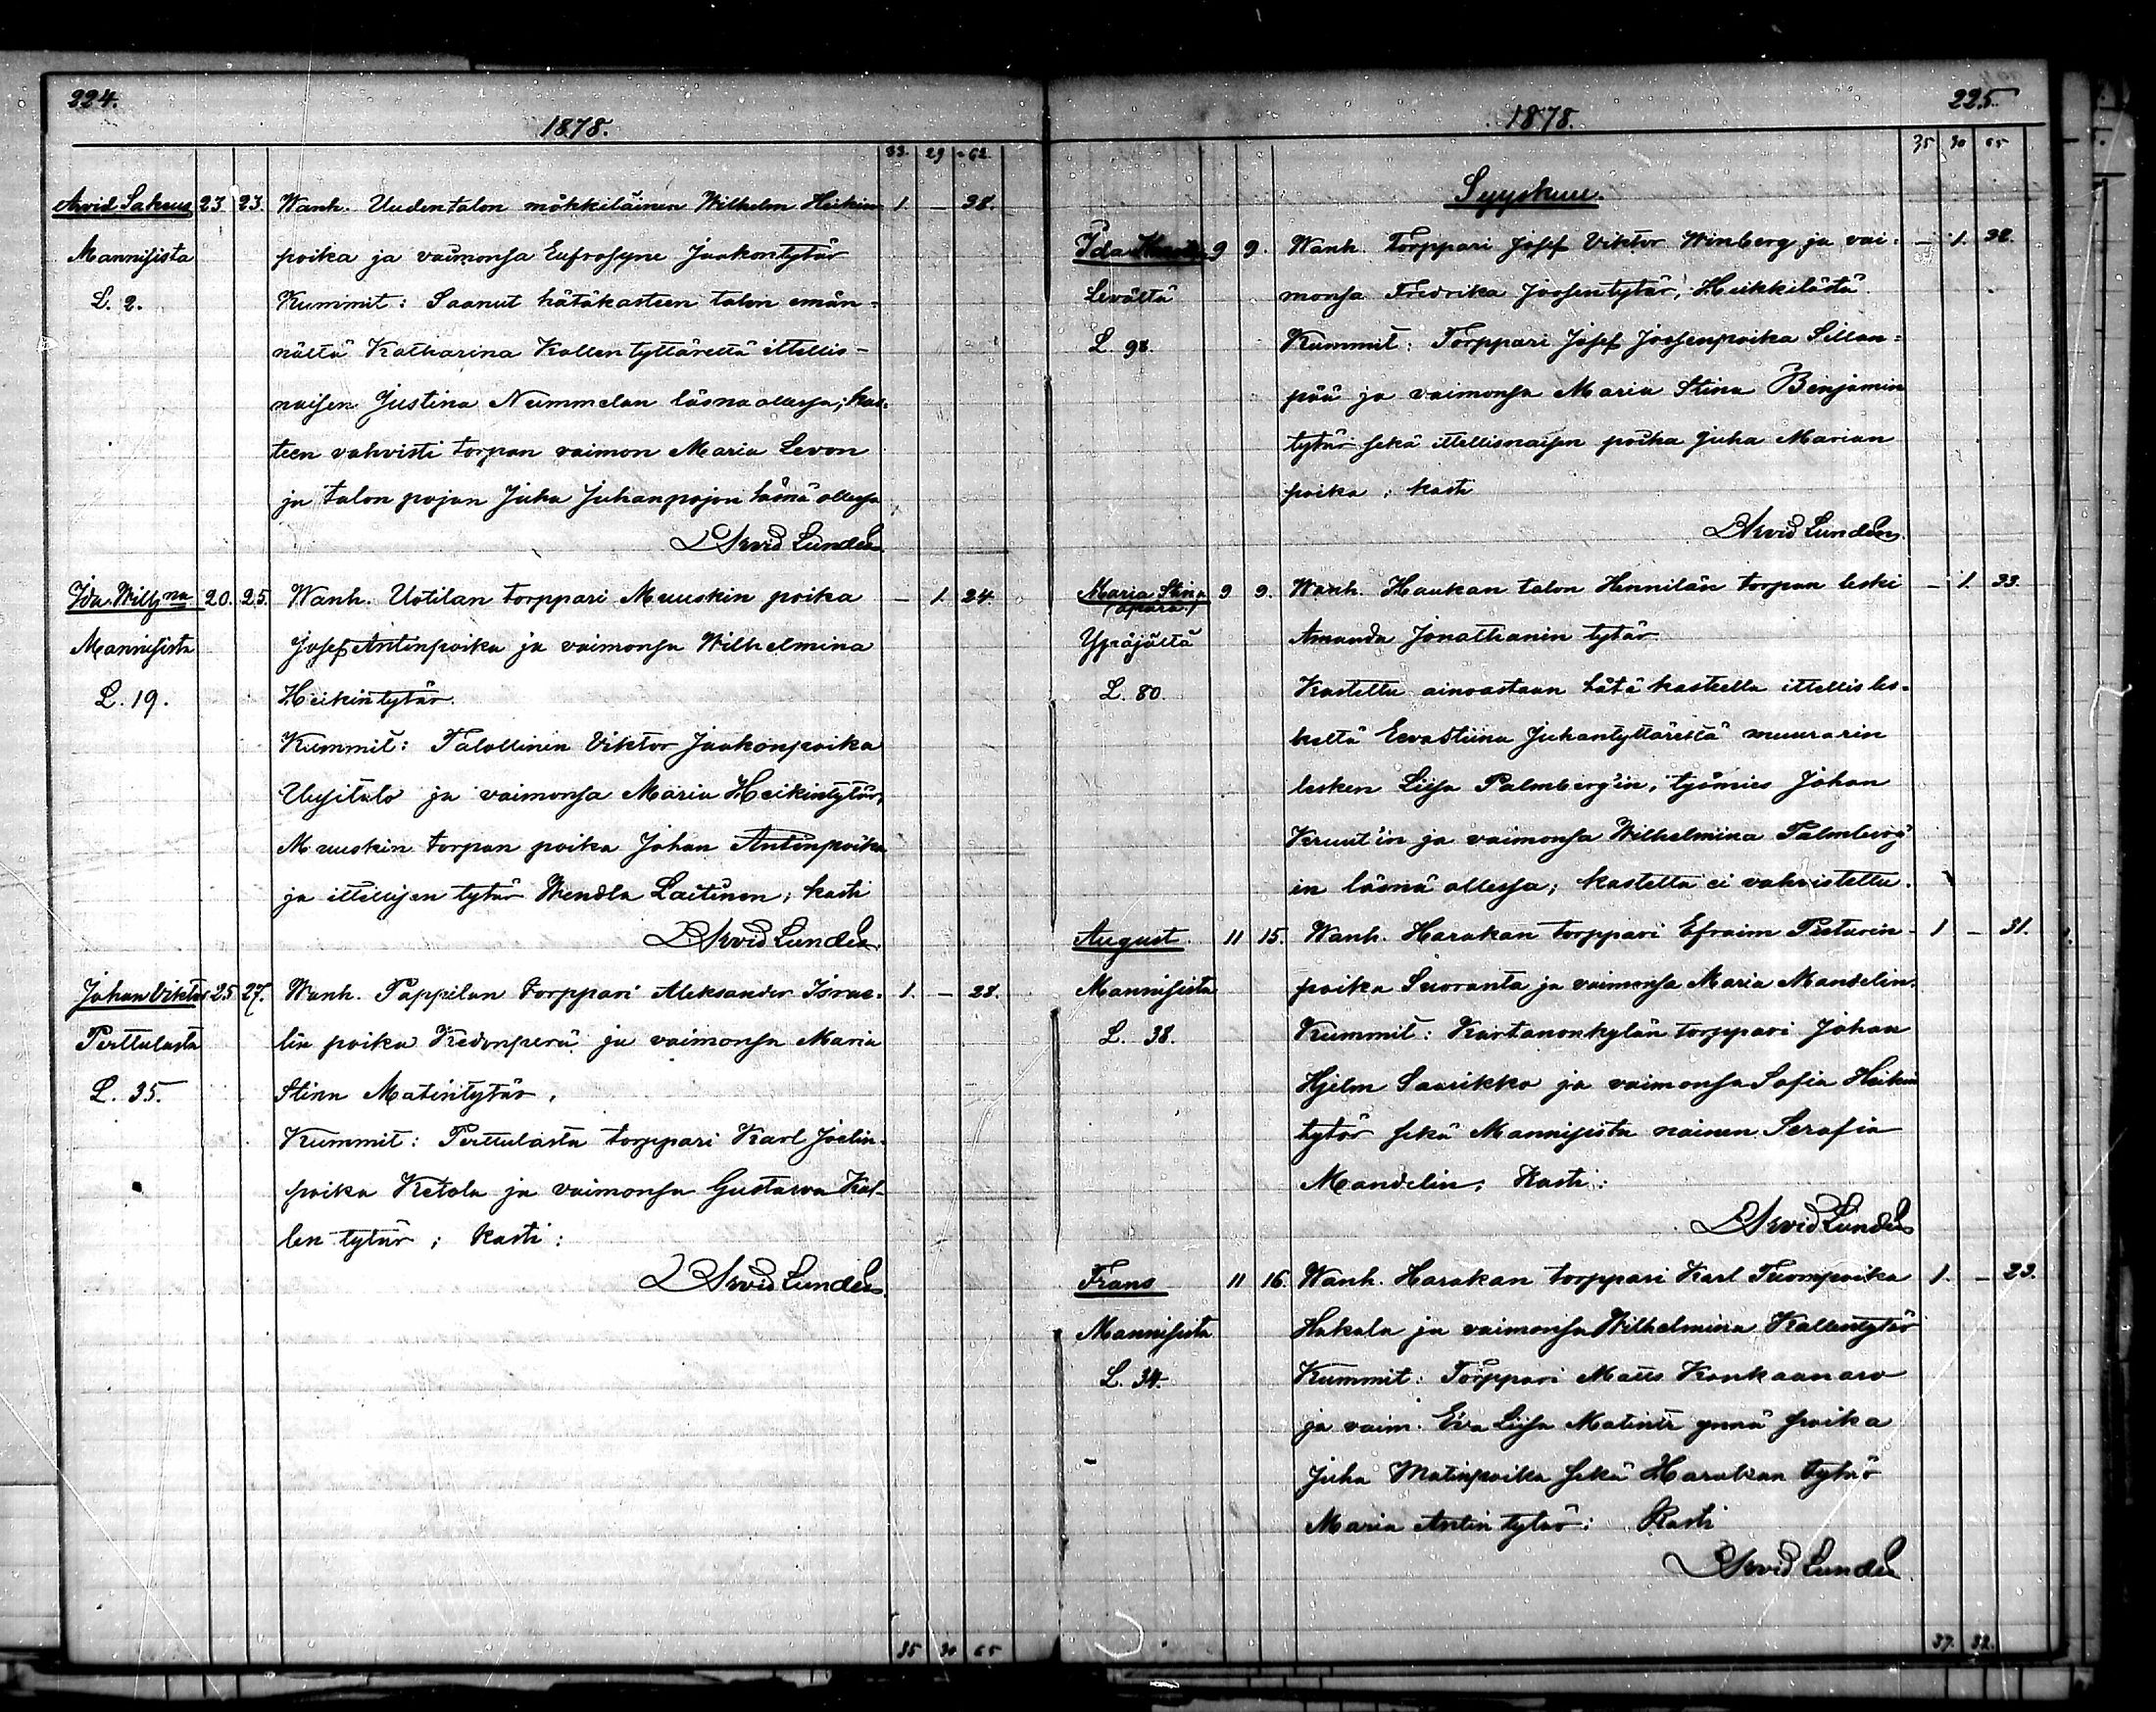 224.
1878.
33. 29 = 62.
Arvid Sakeus 23. 23. Wanh. Uudentalon mökkeläinen Wilhelm Heikin 1 — 38.
Mannisista poika ja vaimonsa Eufrosyne Jaakontytär
L. 2. Kummit: Saanut hätäkasteen talon emän=
nältä Katharina Kallen tyttäreltä ittellis-
naisen Justina Nummelan läsna ollessa; kas-
teen vahvisti torpan vaimon Maria Levon
ja talon pojan Juha Juhanpojan läsnä ollessa
Arvid Lunden
Ida Wilh:na 20. 25. Wanh. Uotilan torppari Muuskin poika — 1. 24.
Mannisista Josef Antinpoika ja vaimonsa Wilhelmina
L. 19. Heikintytär.
Kummit: Talollinen Viktor Jaakonpoika
Uusitalo ja vaimonsa Maria Heikintytär,
Muuskin torpan poika Johan Antinpoika
ja ittellisen tytär Wendla Laitinen; kasti
Arvid Lunden.
Johan Viktor 25 27. Wanh. Pappilan torppari Aleksander Israe- 1. — 28.
Perttulasta lin poika Kedonperä ja vaimonsa Maria
L. 35. Stina Matintytär.
Kummit: Perttulasta torppari Karl Joelin-
poika Ketola ja vaimonsa Gustawa Kal-
len tytär; kasti:
Arvid Lunden.
35 30 65
225.
1878.
35 30 65
Syyskuu.
Ida 9 9. Wanh. Torppari Josef Viktor Winberg ja vai= — 1. 32.
Levältä monsa Fredrika Joosentytär, Heikkilästä.
L. 98. Kummit: Torppari Josef Joosenpoika Sillan=
pää ja vaimonsa Maria Stina Benjamin
tytär sekä ittellisnaisen poika Juha Marian
poika; kasti
Arvid Lunden.
Maria Stina 9 9. Wanh. Haukan talon Hennilän torpan leski — 1. 33.
/äpärä/ Amanda Jonathanin tytär
Ypäjältä
L. 80. Kastettu ainoastaan hätä kasteella ittellis les-
keltä Eevastiina Juhantyttäreltä muurarin
lesken Liisa Palmberg'in, työmies Johan
Kruut'in ja vaimonsa Wilhelmina Palmberg'
in läsnä ollessa; kastetta ei vahvistettu.
August 11 15. Wanh. Harakan torppari Efraim Pietarin- 1 — 31.
Mannisista poika Suoranta ja vaimonsa Maria Mandelin.
L. 38. Kummit: Kartanonkylän torppari Johan
Hjelm Saarikko ja vaimonsa Sofia Heikin
tytär sekä Mannisista nainen Serafia
Mandelin; Kasti:
Arvid Lunden
Frans 11 16. Wanh. Harakan torppari Karl Tuompoika 1. — 23.
Mannisista Hakala ja vaimonsa Wilhelmina Kallentytär
L. 34. Kummit: Torppari Matts Kankaanaro
ja vaim. Eva Liisa Matintr ynnä poika
Juha Matinpoika sekä Harakan tytär
Maria Antin tytär: Kasti
Arvid Lunden
37. 32.